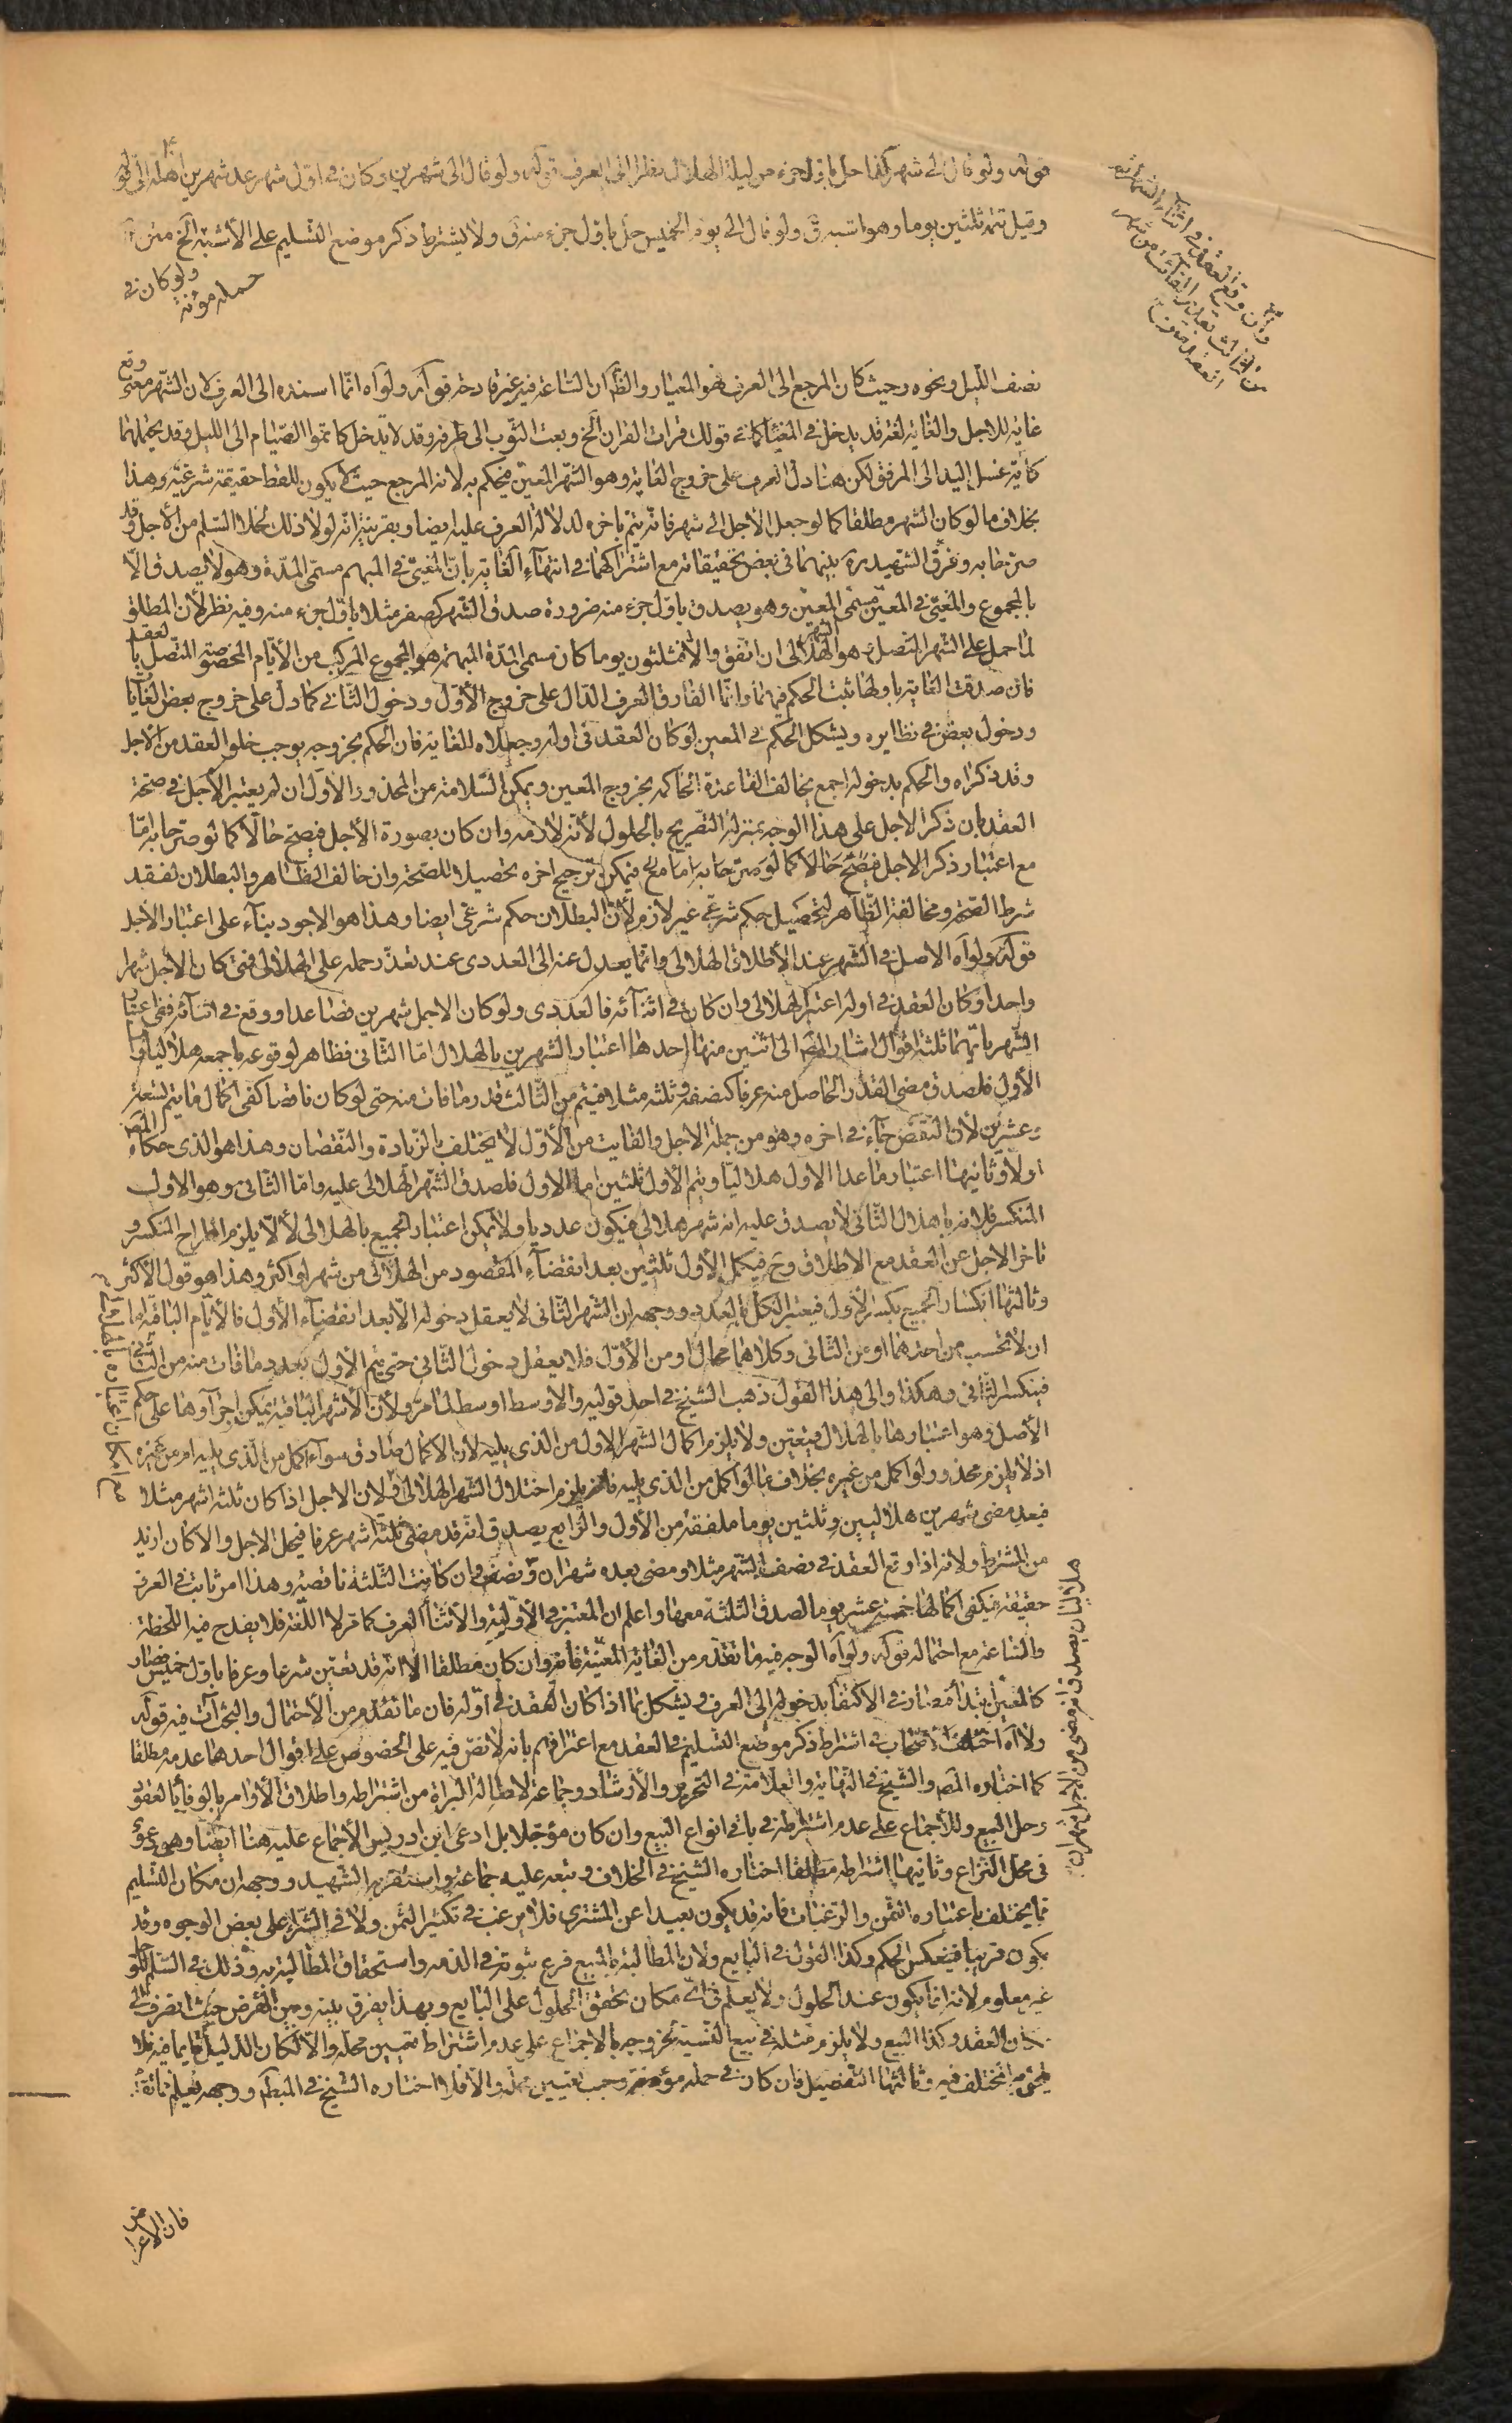 قوله ولو قال الى شهر كذا حل باول جزء من ليلة الهلال نظرا الى العرف قوله ولو قال الى شهرين وكان في اوّل شهر عد شهرين اهلة الى قوله
وقيل تتمه ثلثين يوما وهو اشبه ق ولو قال الى يوم الخميس حلّ باوّل جزء منه ق ولا يشترط ذكر موضع التسليم على الأشبه الخ متن
ولو كان في
حمله مؤنة
وان وقع العقد في اثناء الشهر ثم
من الثالث بقدر الفائت من شهر
العقد
نصف الليل ونحوه وحيث كان المرجع الى العرف فهو المعيار والظ ان الساعة فيه غير قادحة قوله ولو اه انما اسنده الى العرف لان الشهر معنى وقع
غاية للاجل والغاية لغة قد يدخل في المغيّا كما في قولك قرات القران الخ وبعت الثوب الى طرفه وقد لا يدخل كاتموا الصّيام الى الليل وقد يحتملهما
كآية غسل اليد الى المرفق لكن هنا دلّ العرف على خروج الغاية وهو الشهر المعيّن فيحكم به لانه المرجع حيث لا يكون للفظ حقيقة شرعيّة وهذا
بخلاف ما لو كان الشهر مطلقا كما لو جعل الاجل الى شهر فانّه يتمّ باخره لدلالة العرف عليه ايضا وبقرينة انّه لولا ذلك لخلا السّلم من الأجل وقد
صرّحا به وفرق الشهيد ره بينهما في بعض تحقيقاته مع اشتراكهما في انتهاء الغاية بانّ المغيّى في المبهم مسمّى المدّة وهو لا يصدق الّا
بالمجموع والمغيّى في المعيّن مسمّى المعيّن وهو يصدق باوّل جزء منه ضرورة صدق الشهر كصفر مثلا باوّل جزء منه وفيه نظر لأن المطلق
لما حمل على الشهر المتصل وهو الهلالى ان اتفق والا فثلثون يوما كان مسمى المدّة المبهمة هو المجموع المركّب من الأيّام المخصوصة المتّصل بالعقد
فان صدقت الغاية باولها ثبت الحكم فيهما وانّما الفارق العرف الدّال على خروج الأوّل ودخول الثّانى كما دلّ على خروج بعض الغايا
ودخول بعض في نظايره ويشكل الحكم في المعين لو كان العقد في اوله وجعلاه للغاية فان الحكم بخروجه يوجب خلو العقد من الاجل
وقد ذكراه والحكم بدخوله اجمع يخالف القاعدة الحاكمة بخروج المعين ويمكن السّلامة من المحذور الاوّل ان لم يعتبر الأجل في صحّة
العقد بان ذكر الاجل على هذا الوجه بمنزلة التصريح بالحلول لأنّه لازمه وان كان بصورة الأجل فيصحّ حالّا كما لو صرّحا به امّا
مع اعتبار ذكر الاجل فيصحّ حالا كما لو صرّحا به امّا مع فيمكن ترجيح اخره تحصيلا للصّحة وان خالف الظّاهر والبطلان لفقد
شرط الصّحة ومخالفة الظّاهر لتحصيل حكم شرعّى غير لازم لأنّ البطلان حكم شرعّى ايضا وهذا هو الاجود بناء على اعتبار الأجل
قوله ولو اه الاصل في الشّهر عند الأطلاق الهلالى وانّما يعدل عنه الى العددى عند تعذّر حمله على الهلالى فمتى كان الأجل شهرا
واحدا وكان العقد في اوله اعتبر الهلالى وان كان في اثنائه فالعددى ولو كان الاجل شهرين فصاعدا ووقع في اثنائه ففى اعتبار
الشّهر بايّهما ثلثة اقوال اشار المص الى اثنين منها احدها اعتبار الشهرين بالهلال امّا الثّانى فظاهر لوقوعه باجمعه هلاليا وامّا
الأول فلصدق مضى القدر الحاصل منه عرفا كنصفه وثلثه مثلا فيتم من الثّالث قدر ما فات منه حتى لو كان ناقصا كفى اكمال ما يتم تسعة
وعشرين لأن النّقص جآء في اخره وهو من جملة الاجل والفايت من الأوّل لا يختلف بالزّيادة والنّقصان وهذا هو الذى حكاه المص
اولا وثانيها اعتبار ما عدا الاول هلاليّا ويتم الأول ثلثين امّا الاول فلصدق الشّهر الهلالى عليه وامّا الثّانى وهو الاول
المنكسر فلانه باهلال الثّانى لا يصدق عليه انه شهر هلالى فيكون عدديا ولا يمكن اعتبار الجميع بالهلالى لألّا يلزم اطراح المنكسر و
تاخر الاجل عن العقد مع الاطلاق وح فيكمل الأول ثلثين بعد انقضآء المقصود من الهلالى من شهر او اكثر وهذا هو قول الأكثر
وثالثها انكسار الجميع بكسر الأول فيعتبر الكلّ بالعدد ووجهه ان الشّهر الثّانى لا يعقل دخوله الّا بعد انقضاء الأول فالأيّام الباقية اما
ان لا تحسب من احدهما او من الثّانى وكلاهما محال او من الأوّل فلا يعقل دخول الثّانى حتى يتم الأول بعدد ما فات منه من الثّانى
فينكسر الثّانى وهكذا والى هذا القول ذهب الشّيخ في احد قوليه والاوسط اوسط لما مرّ ولأن الأشهر الباقية يمكن اجرآؤها على حكم
الأصل وهو اعتبارها بالهلال فيتعين ولا يلزم اكمال الشّهر الاول من الذى يليه لان الاكمال صادق سوآء اكمل من الّذى يليه ام من غيره
اذ لا يلزم محذور ولو اكمل من غيره بخلاف ما لو اكمل من الذى يليه فانه يلزم اختلال الشّهر الهلالى ولان الاجل اذا كان ثلثة اشهر مثلا
فبعد مضى شهرين هلاليين وثلثين يوما ملفقة من الأول والرّابع يصدق انّه قد مضى ثلثة اشهر عرفا فيحل الاجل والا كان ازيد
من المشترط ولانه اذا وقع العقد في نصف الشّهر مثلا ومضى بعده شهران ونصف وان كانت الثّلثة ناقصة وهذا امر ثابت في العرف
حقيقة فيكفى اكمالها خمسة عشر يوما لصدق الثلثة معها واعلم ان المعتبر في الأوّلية والأثنآء العرف كما مرّ لا اللّغة فلا يقدح فيه اللّحظة
والسّاعة مع احتماله قوله ولو اه الوجه فيه ما تقدّم من الغاية المعيّنة فانه وان كان مطلقا الا انّه قد تعيّن شرعا وعرفا باوّل خميس فصار
كالمعيّن ابتدآء فصار في الاكتفآء بدخوله الى العرف ويشكل بما اذا كان العقد في اوّله فان ما تقدّم من الأحتمال والبحث آت فيه قوله
ولا اه اختلف الأصحاب في اشتراط ذكر موضع التّسليم في العقد مع اعترافهم بانه لا نصّ فيه على الخصوص على اقوال احدها عدمه مطلقا
كما اختاره المص والشيخ في النّهاية والعلّامة في التّحرير والأرشاد وجماعة لاصالة البراءة من اشتراطه واطلاق الأوامر بالوفآء بالعقود
وحل البيع وللأجماع على عدم اشتراطه في باقى انواع البيع وان كان مؤجّلا بل ادعى ابن ادريس الأجماع عليه هنا ايضا وهى دعوى
فى محل النّزاع وثانيها اشتراطه مطلقا اختاره الشيخ في الخلاف وتبعه عليه جماعة واستقربه الشّهيد ووجهه ان مكان التّسليم
مما يختلف باعتباره الثّمن والرّغبات فانه قد يكون بعيدا عن المشترى فلا يرغب في تكثير الثّمن ولا في الشّراء على بعض الوجوه وقد
يكون قريبا فينعكس الحكم وكذا القول في البايع ولان المطالبة بالمبيع فرع ثبوته في الذمه واستحقاق المطالبة به وذلك في السّلم المؤجل
غير معلوم لانه انما يكون عند الحلول ولا يعلم في اىّ مكان يحقق الحلول على البايع وبهذا يفرق بينه وبين القرض حيث انصرف الى
مكان العقد وكذا البيع ولا يلزم مثله في بيع النّسية لخروجه بالاجماع على عدم اشتراط تعيين محلّه والّا لكان الدّليل قايما فيه فلا
يلحق به المختلف فيه وثالثها التّفصيل فان كان في حمله مؤنة وجب تعيين محلّه والّا فلا اختاره الشّيخ في المبسوط ووجهه يعلم مما تقدّم
هلاليّان يصدق انه مضى من الأجل شهران
فان الاغراض